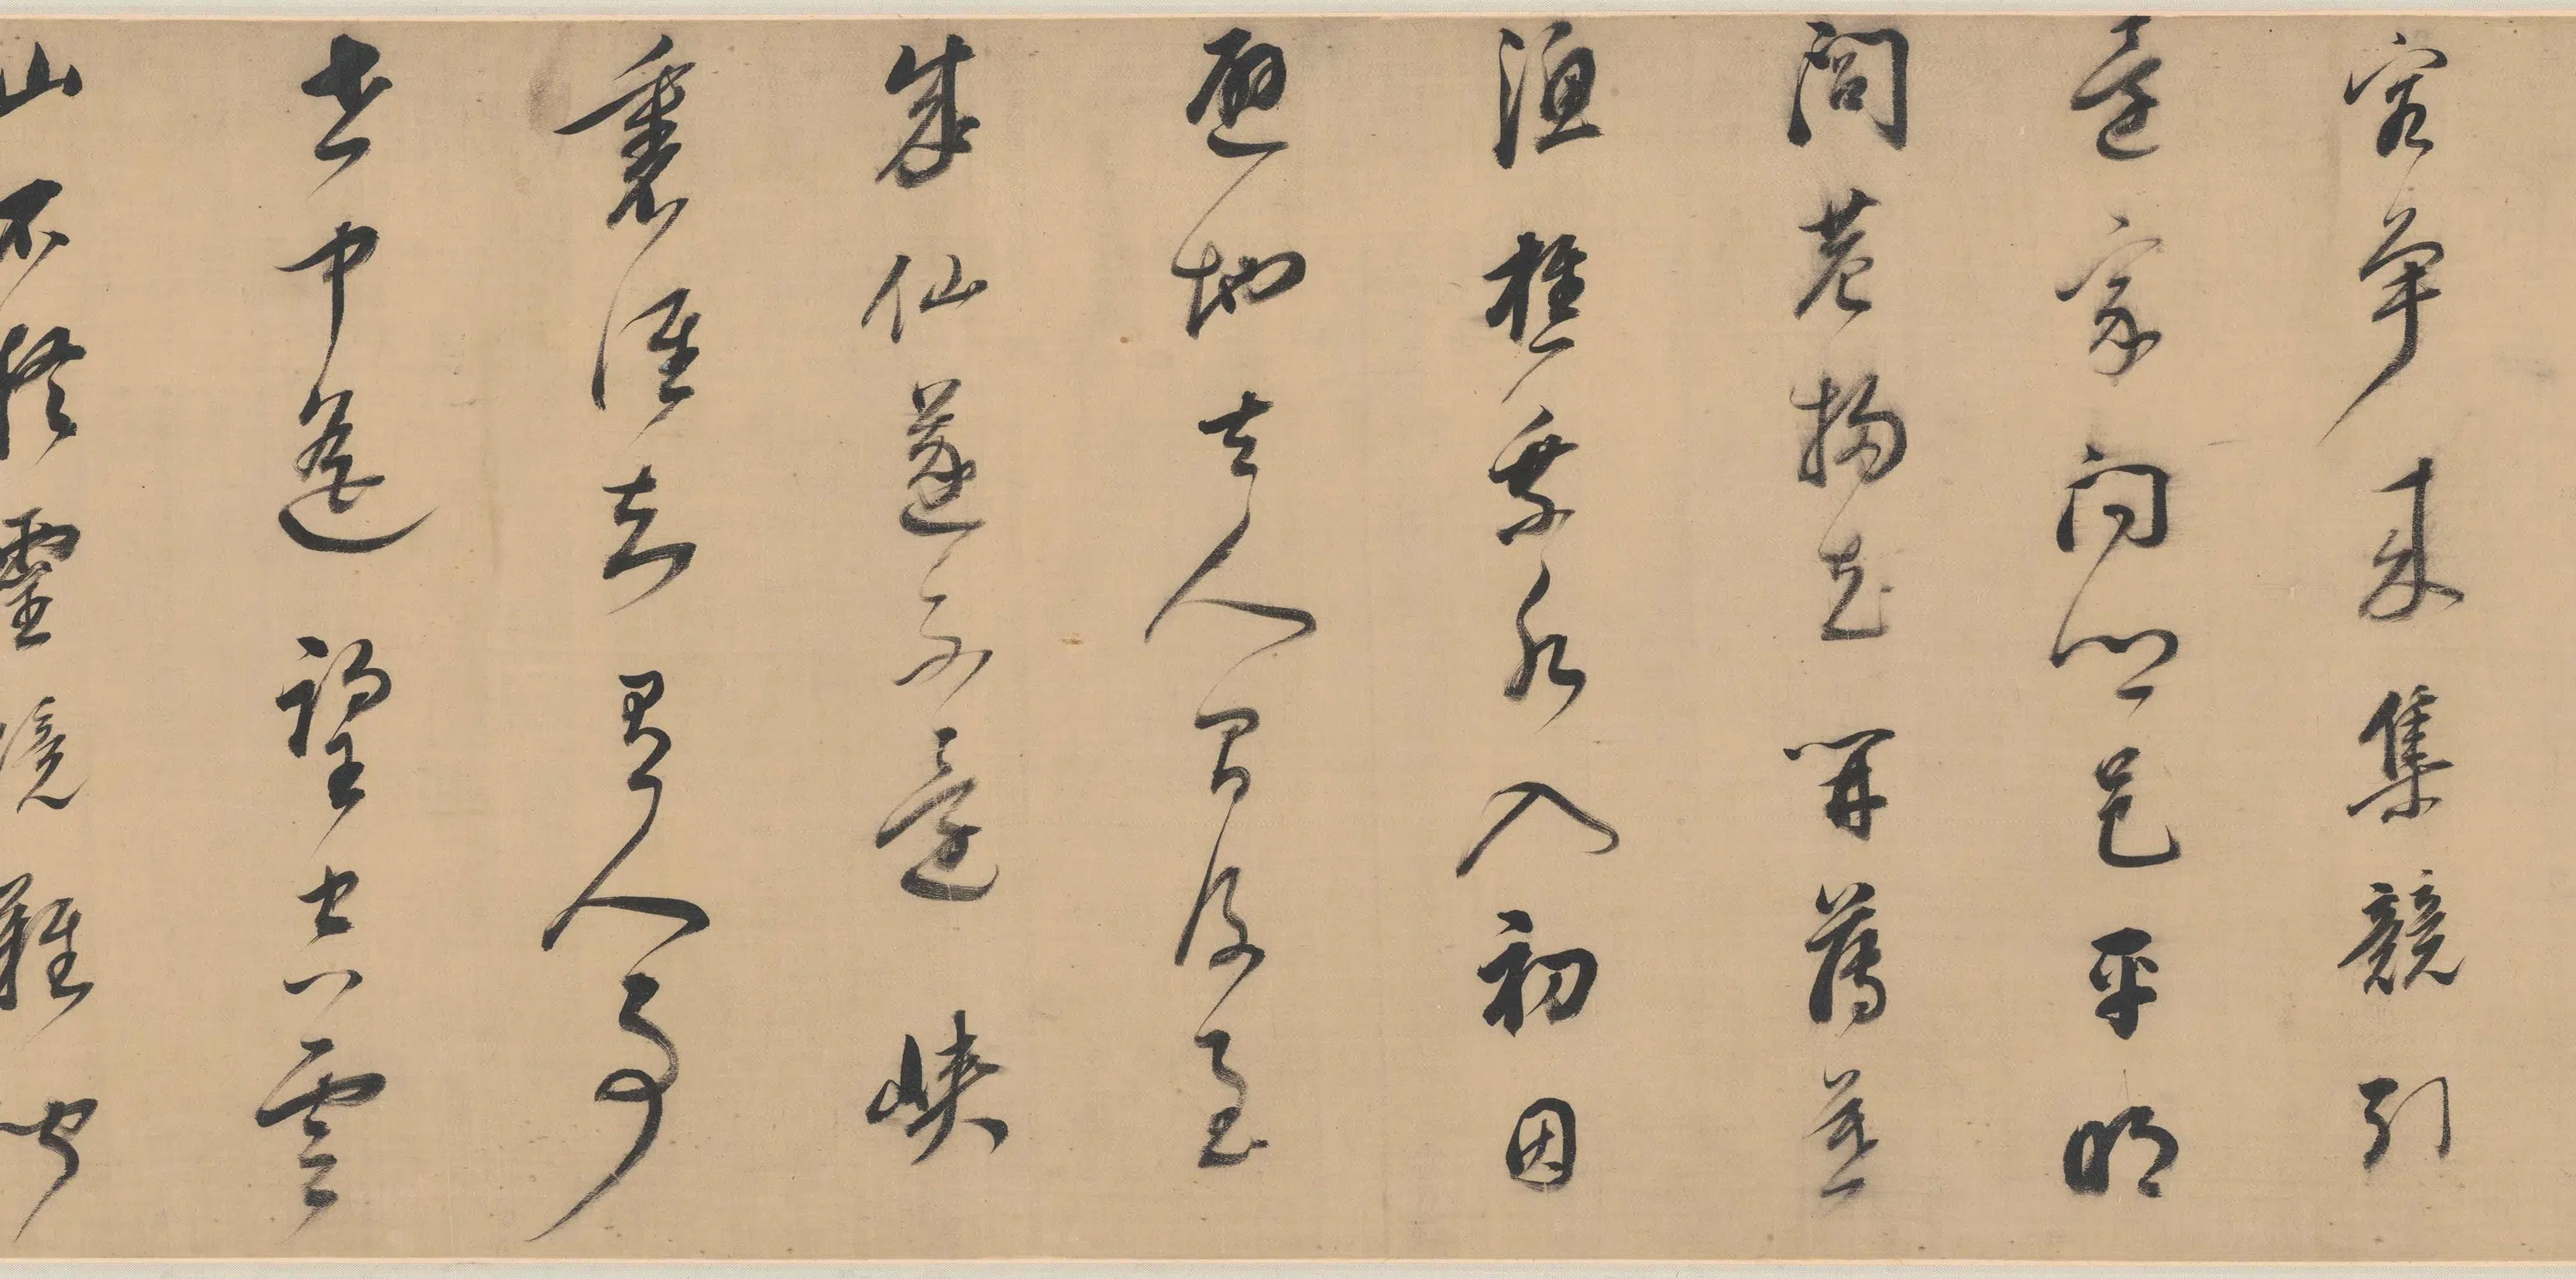 客爭來集競引
還家問都邑平明
閭巷掃花開薄暮
漁樵乘水入初因
避地去人間及至
成仙遂不還峽
裏誰知有人事
世中遙望空雲
山不疑靈境難聞